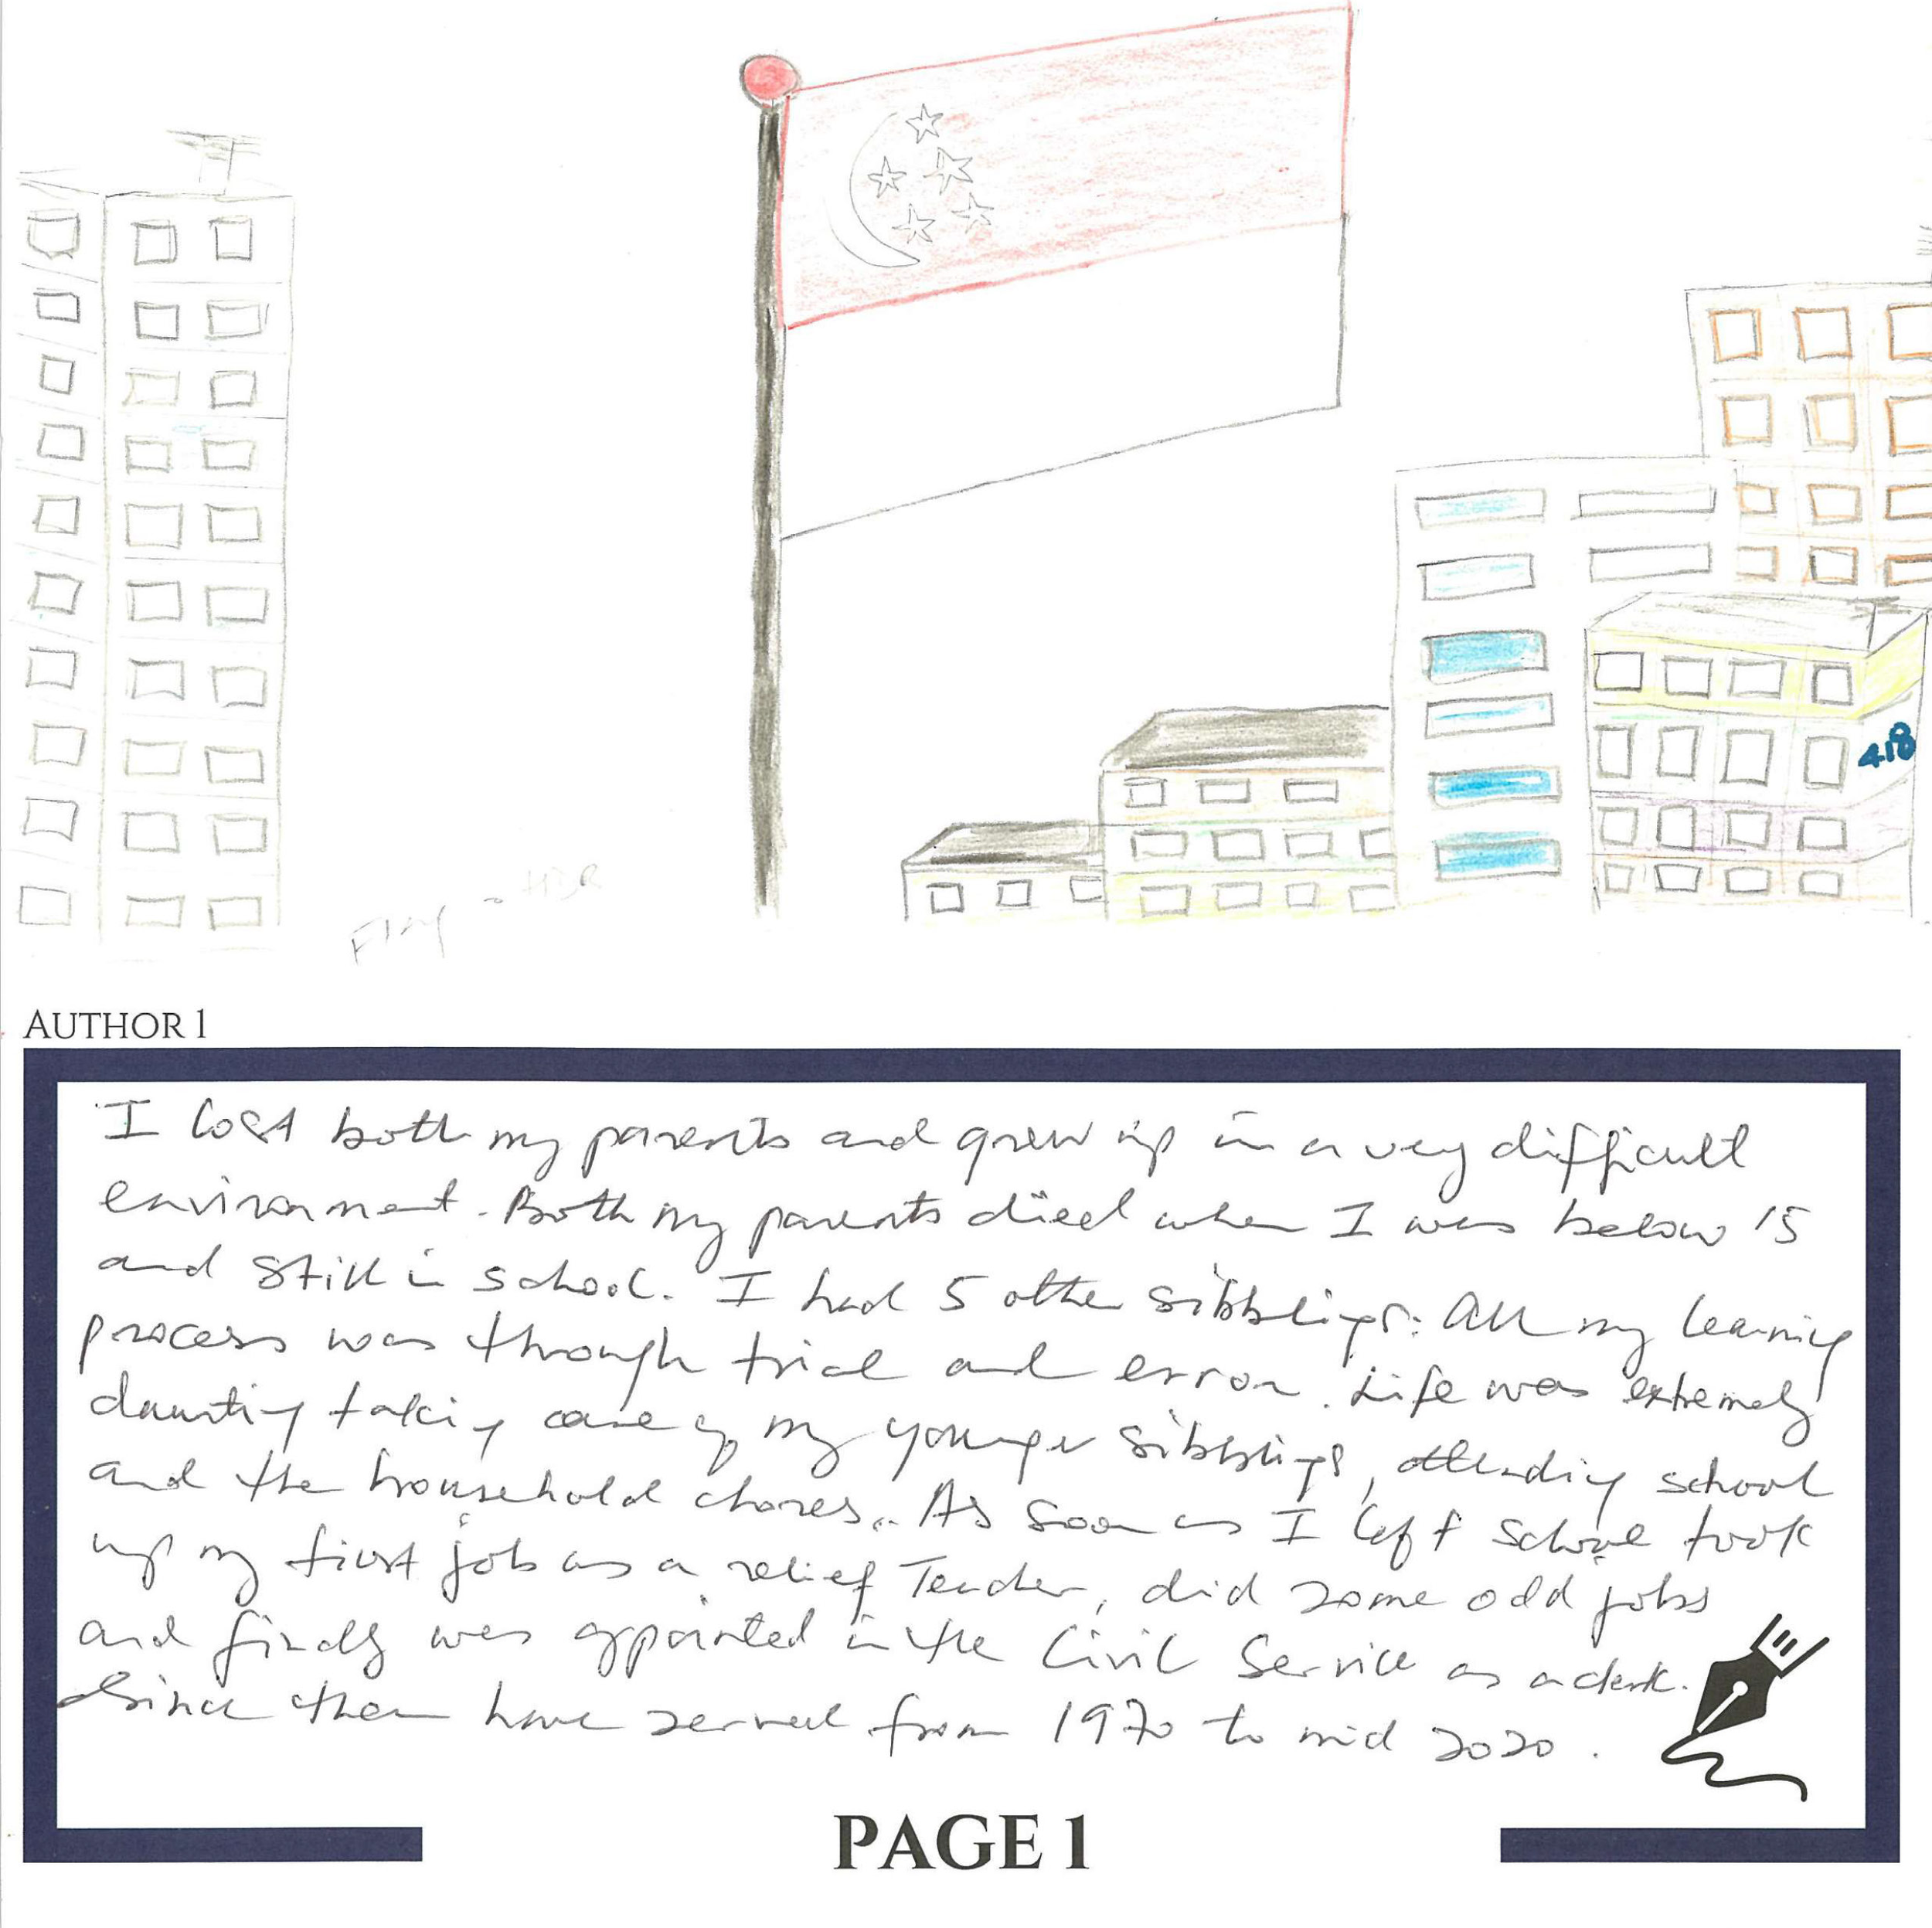 418
Flag - HDB
AUTHOR 1
I lost both my parents and grew up in a very difficult
environment. Both my parents died when I was below 15
and still in school. I had 5 other sibblings. All my learning
process was through trial and error. Life was extremely
daunting taking care of my younger sibblings, attending school
and the household chores.. As soon as I left school took
up my first job as a relief Teacher, did some odd jobs
and finally was appointed in the Civil Service as a clerk.
Since then have served from 1970 to mid 2020.
PAGE 1